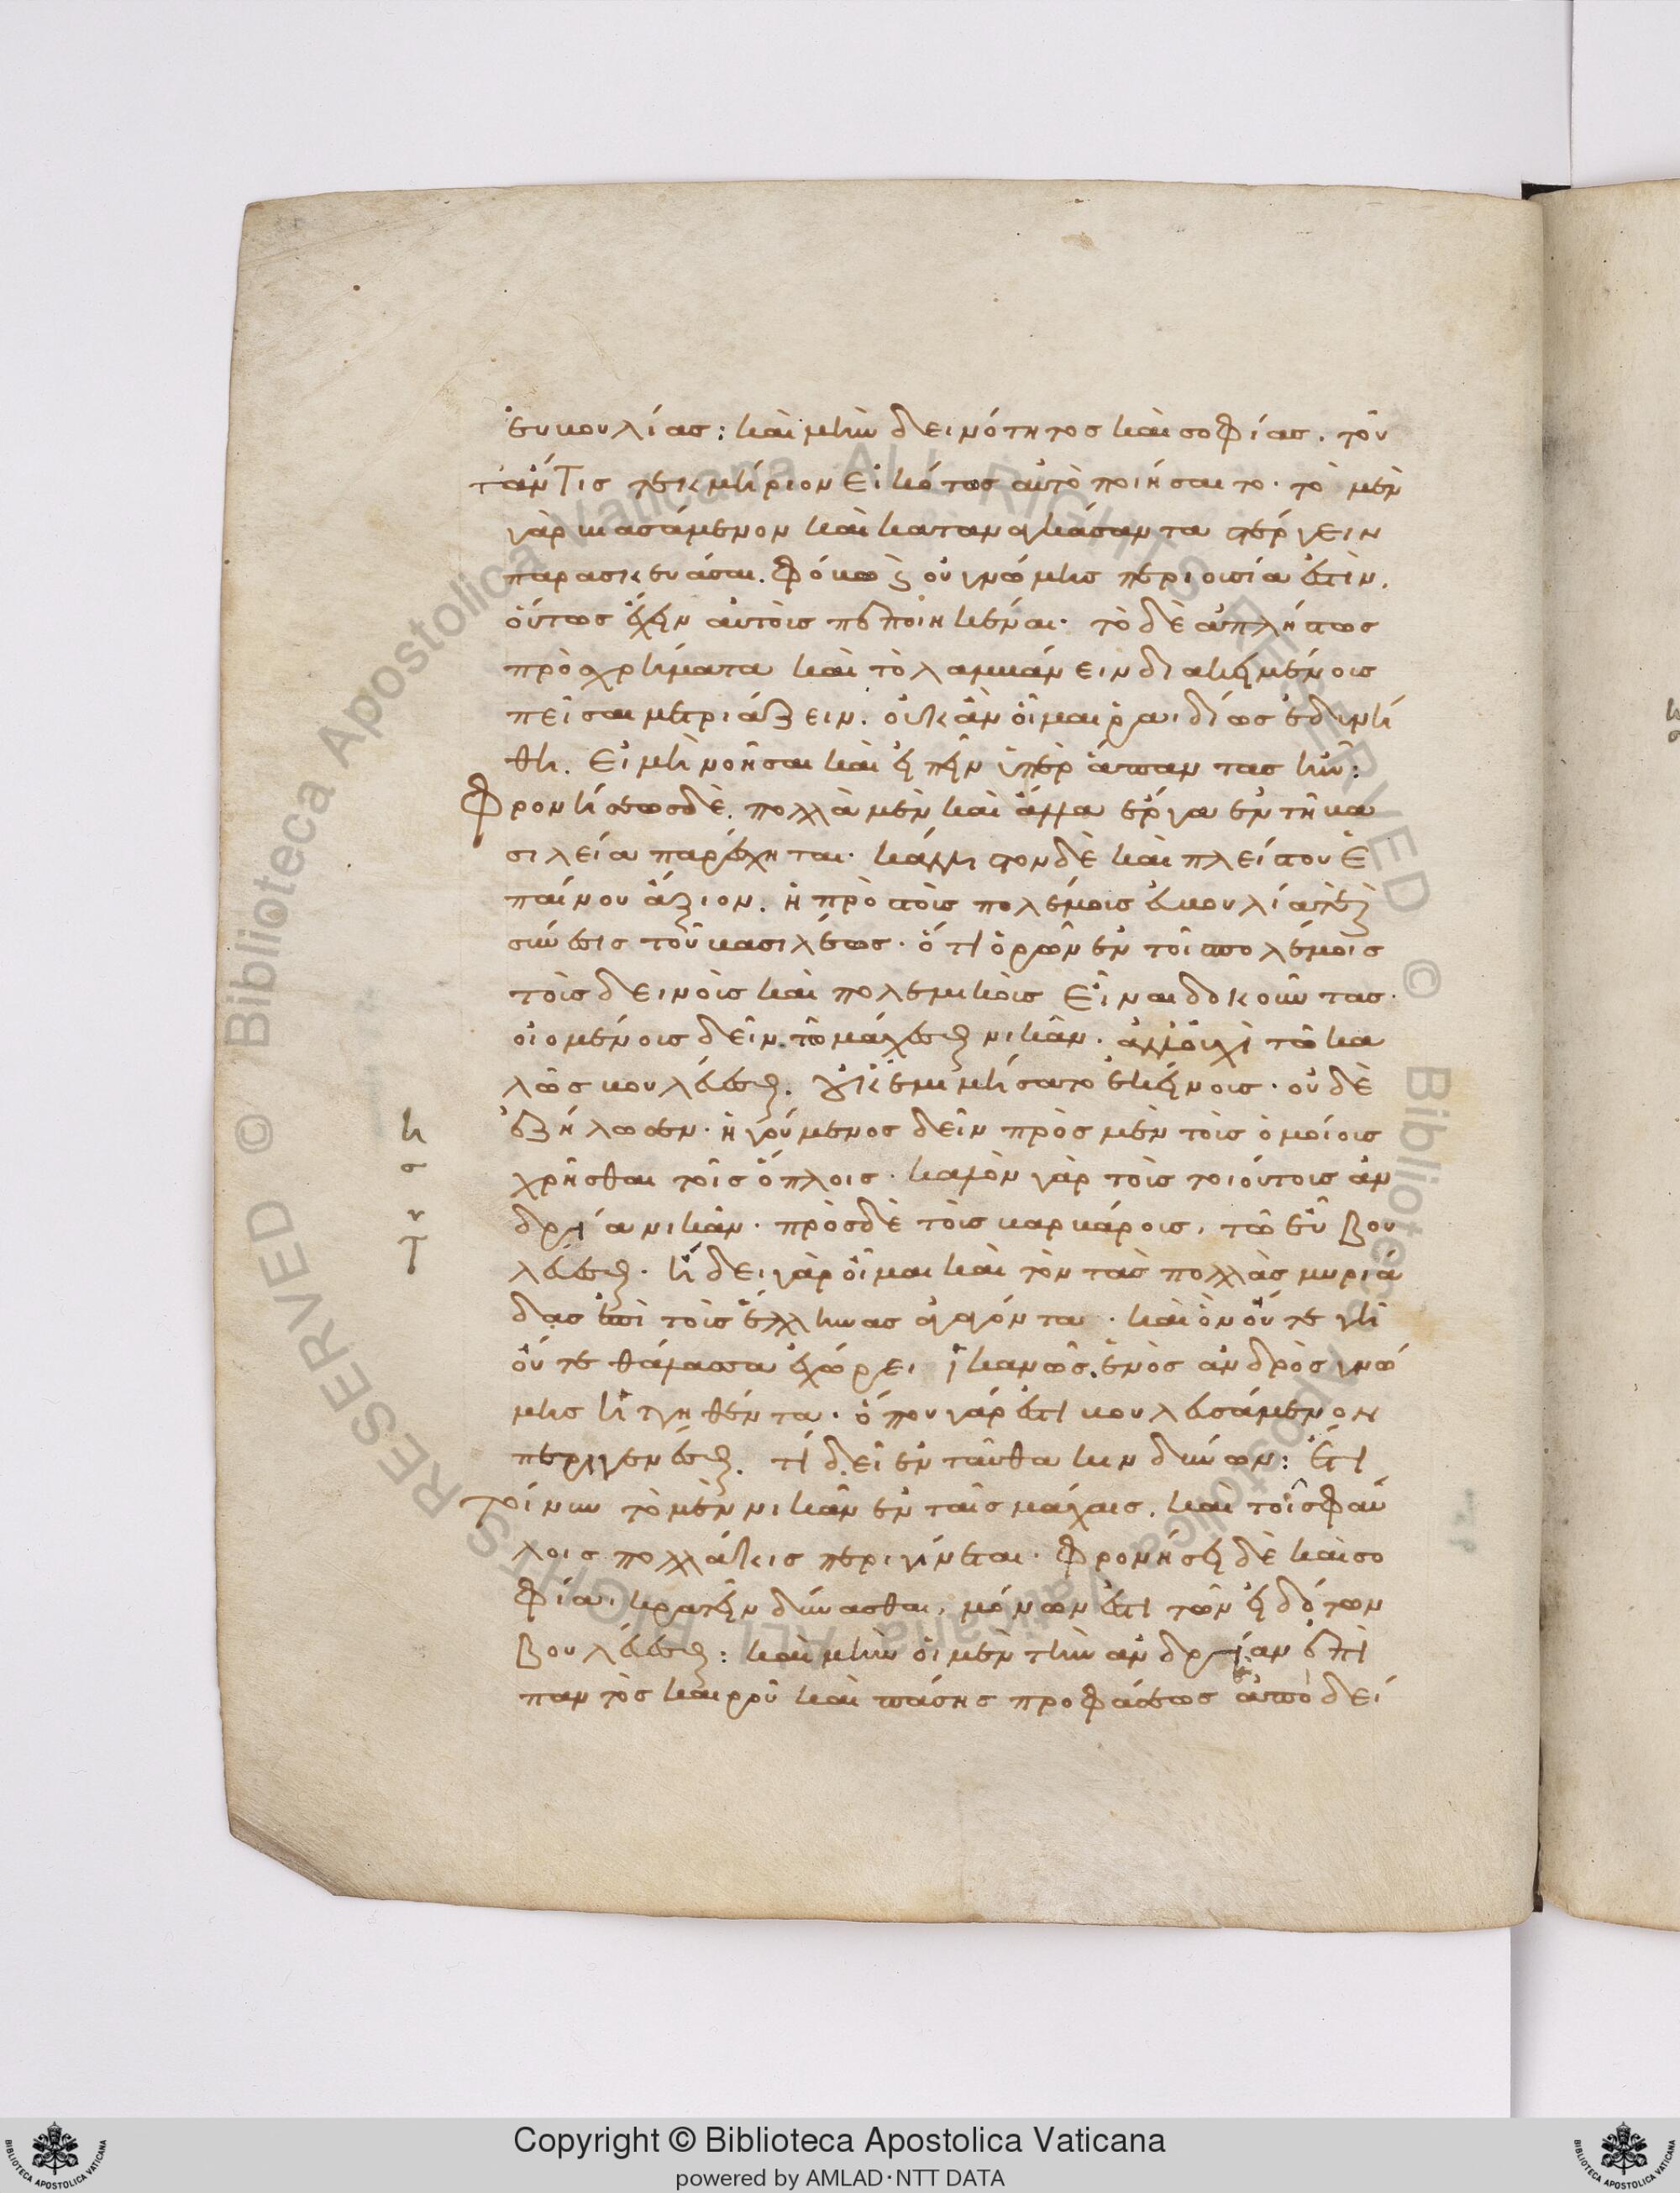 εὐβουλίας: καὶ μὴν δεινότητος καὶ σοφίας. τοῦ
τ' ἄν τις τεκμήριον εἰκότως αὐτὸ ποιήσαιτο. τὸ μὲν
γὰρ βιασάμενον καὶ καταναγκάσαντα στέργειν
παρασκευάσαι. φόβω καὶ οὐ γνώμης περιουσία ἐστὶν.
οὕτως ἔχειν αὐτοὺς πεποιηκέναι. τὸ δὲ ἀπλήστως
πρὸς χρήματα καὶ τὸ λαμβάνειν διακειμένους
πεῖσαι μετριάζειν. οὐκ ἂν οἶμαι ῥαιδίως ἐδυνή
θη. εἰ μὴ νοῆσαι καὶ εἰπεῖν ὑπὲρ ἅπαντας ἦν:
Φρονήσεως δὲ. πολλὰ μὲν καὶ ἄλλα ἔργα ἐν τῆ βα
σιλεία παρέσχηται. κάλλιστον δὲ καὶ πλείστου ἐ
παίνου ἄξιον. ἡ πρὸς τοὺς πολέμους εὐβουλία τε καὶ
σύνεσις τοῦ βασιλέως. ὅτι ὁρῶν ἐν τοῖς πολέμοις
τοὺς δεινοὺς καὶ πολεμικοὺς εἶναι δοκοῦντας.
οἰομένους δεῖν τῶ μάχεσθαι νικᾶν. ἀλλ' οὐχὶ τῶ κα
λῶς βουλεύεσθαι. οὐκ ἐμιμήσατο ἐκείνους. οὐδὲ
ἐζήλωσεν. ἡγούμενος δεῖν πρὸς μὲν τοὺς ὁμοίους
χρῆσθαι τοῖς ὅπλοις. καλὸν γὰρ τοὺς τοιούτους ἀν
δρεία νικᾶν. πρὸς δὲ τοὺς βαρβάρους, τῶ εὖ βου
λεύεσθαι. ἤδει γὰρ οἶμαι καὶ τὸν τὰς πολλὰς μυριά
δας ἐπὶ τοὺς ἕλληνας ἀγαγόντα. καὶ ὃν οὔτε γῆ
οὔτε θάλασσα ἐχώρει ἱκανῶς. ἑνὸς ἀνδρὸς γνώ
μης ἡττηθέντα. ὅπου γάρ ἐστι βουλευσάμενον
περιγενέσθαι. τί δεῖ ἐνταῦθα κινδύνων: ἔτι
τοίνυν τὸ μὲν νικᾶν ἐν ταῖς μάχαις. καὶ τοῖς φαύ
λοις πολλάκις περιγίνεται. φρονήσει δὲ καὶ σο
φίαι κρατεῖν δύνασθαι, μόνων ἐστὶ τῶν εἰδότων
βουλεύεσθαι: καὶ μὴν οἱ μὲν τὴν ἀνδρείαν ἐπὶ
παντὸς καιροῦ καὶ πάσης προφάσεως ἀποδεί